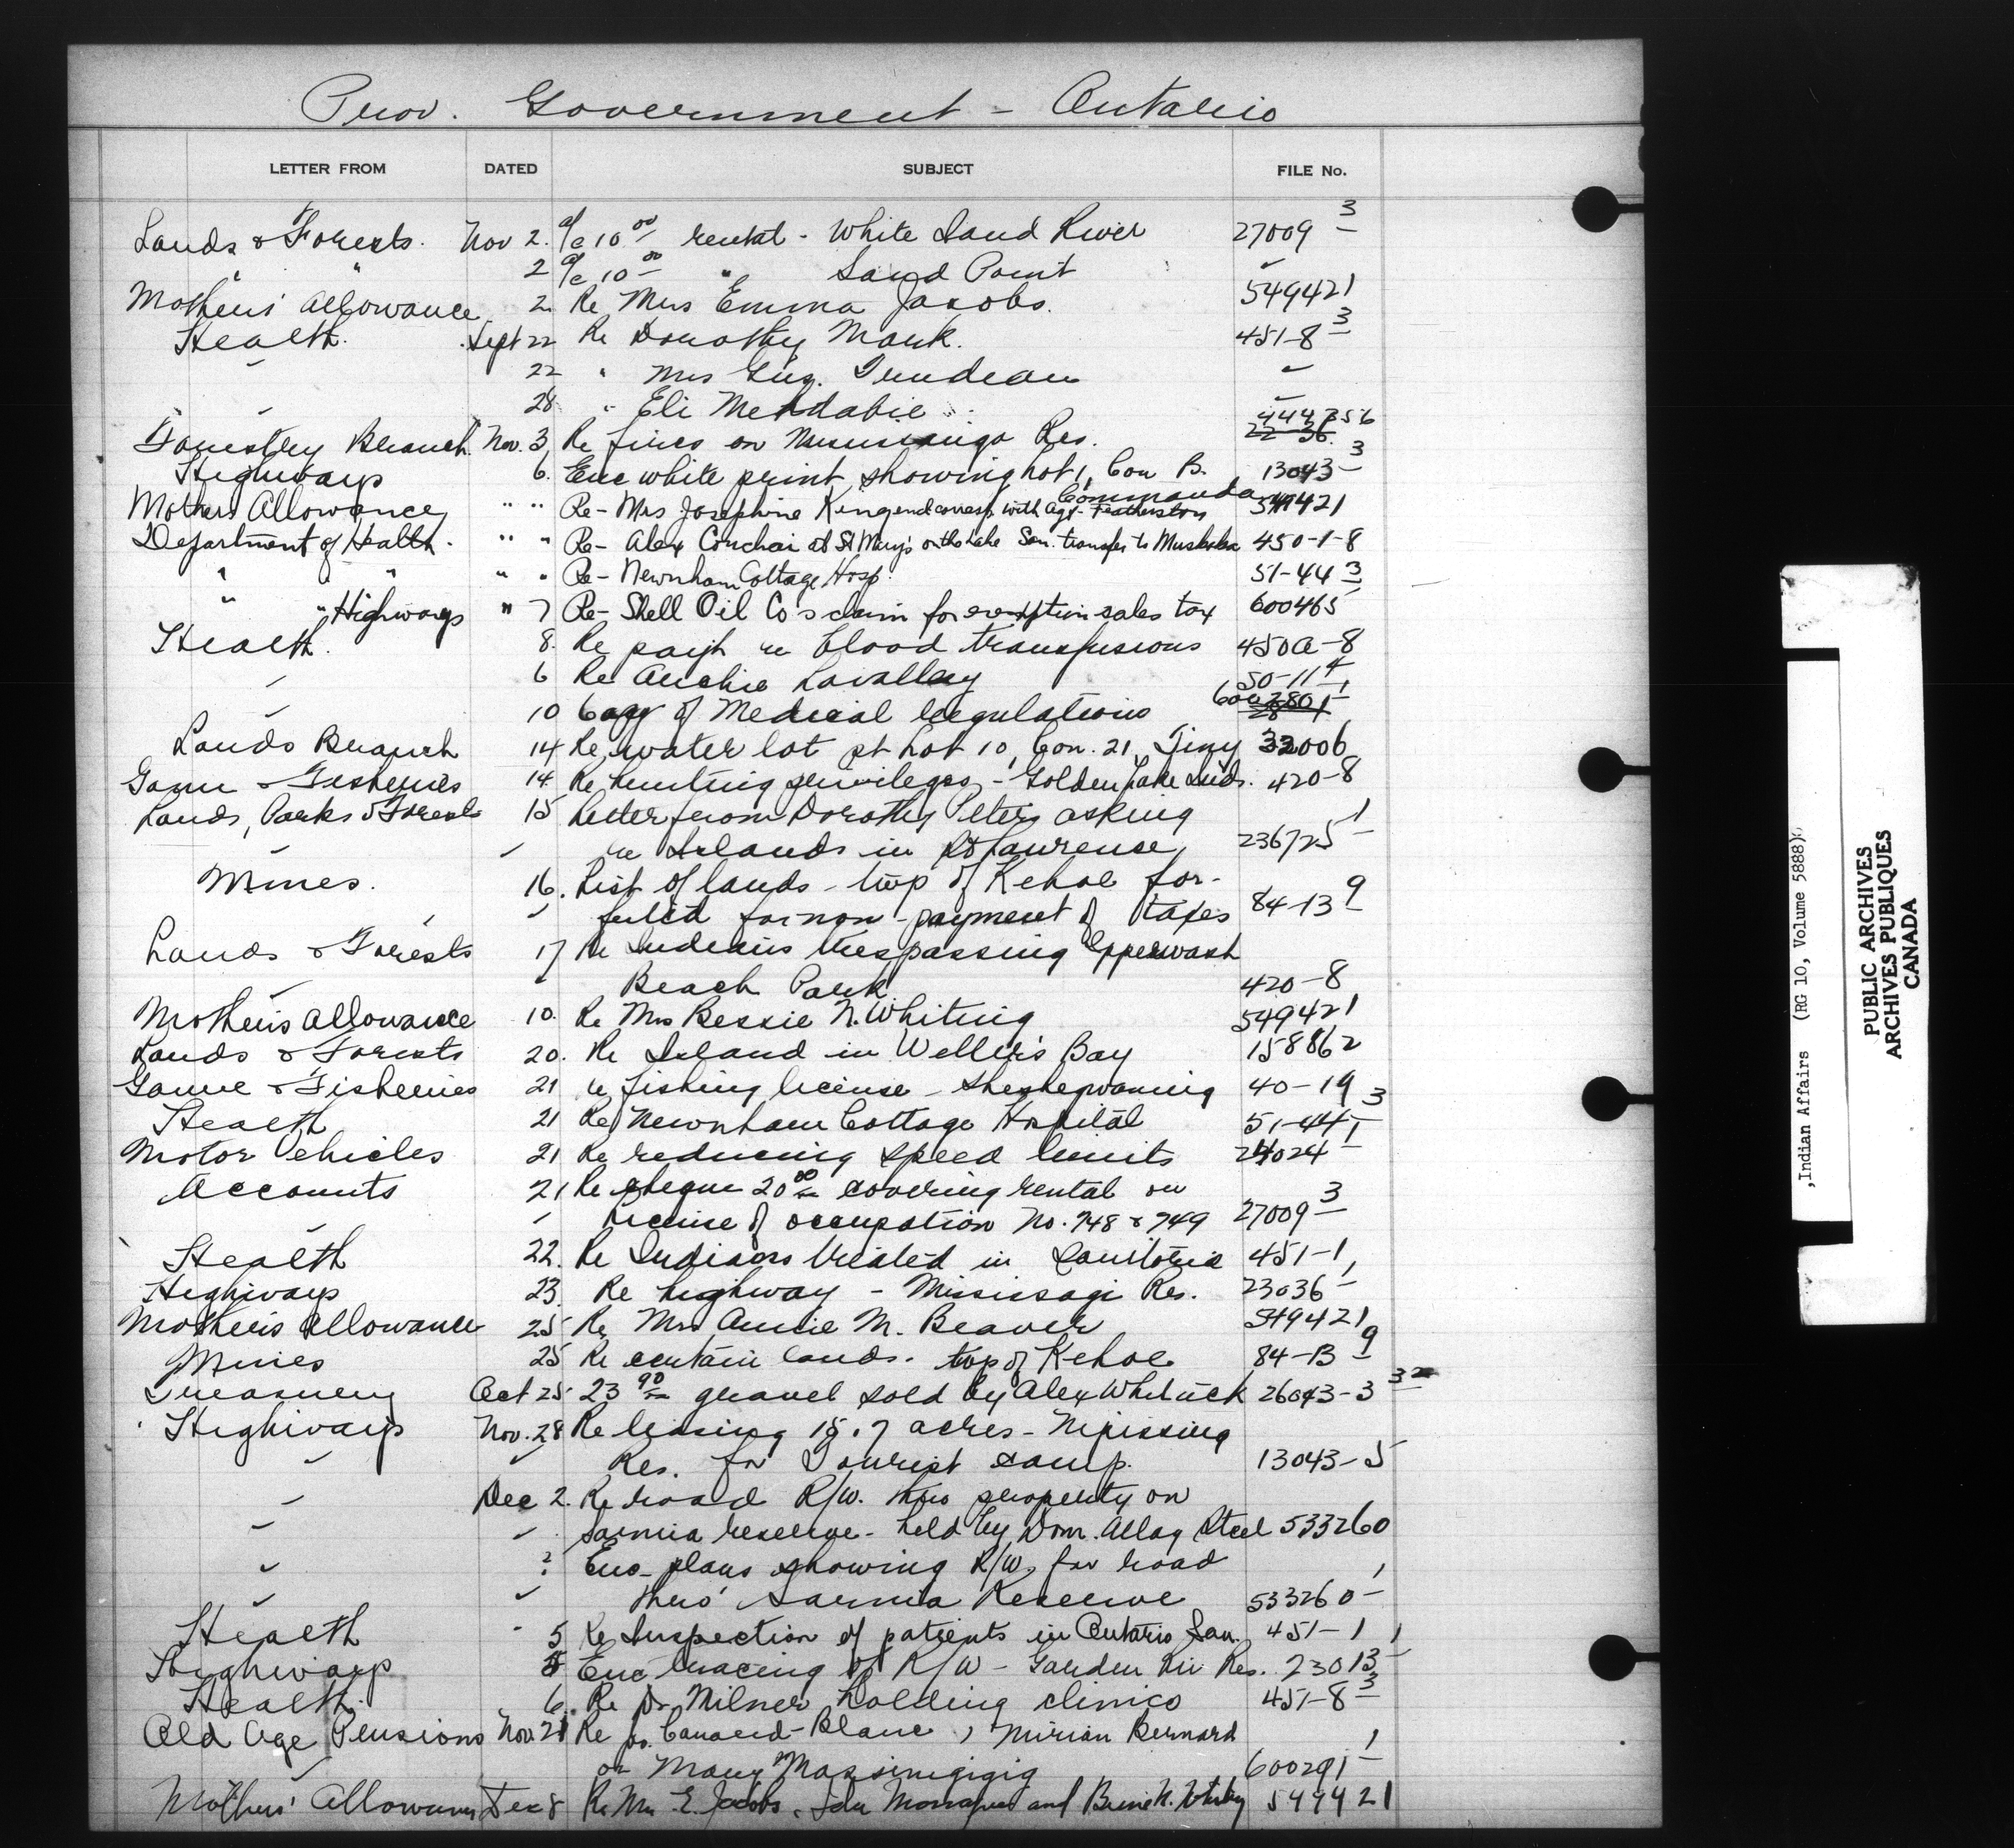 Prov. Government - Ontario
LETTER FROM DATED SUBJECT FILE No.
Lands & Forests. Nov 2. a/c 10 00 rental - White Sand River 27009 3
" " 2 a/c 10 00 " Sand Point "
Mothers' Allowance 2 Re Mrs Emma Jacobs. 549421
Health. Sept 22 Re Dorothy Mark. 451-8 3
" 22 " Mrs Gus. Trudeau "
" 28 " Eli "
Forestry Branch Nov. 3 Re fires on Res.
Highways 6. Enc white print showing Lot 1, Con B. 13043 3
Mothers Allowance " " Re- Mrs Josephine King end corresp. with Agt. Featherston Commanda 549421
Department of Health. " " Re- Alex at St Mary's on the Lake San. transfer to Muskoka 450-1-8
" " " " Re- Newnham Cottage Hosp. 51-44 3
" " Highways " 7 Re- Shell Oil Co's claim for exemption sales tax 600465
Health. 8. Re payt re blood transfusions 450a-8
" 6 Re Archie Lavalley 50-11 4
" 10 Copy of Medical regulations
Lands Branch 14 Re water lot pt Lot 10, Con. 21, Tiny 32006
Game & Fisheries 14 Re hunting privileges - Golden Lake Inds. 420-8
Lands, Parks & Forests 15 Letter from Dorothy Peters asking
" " re Islands in St Lawrence, 236725 1
Mines. 16. List of lands - twp of Kehoe for-
" feited for non-payment of taxes 84-13 9
Lands & Forests 17 Re Indians trespassing Ipperwash
" " Beach Park 420-8
Mothers Allowance 10. Re Mrs Bessie N. Whiting 549421
Lands & Forests 20. Re Island in Weller's Bay 158862
Game & Fisheries 21 re fishing license - Sheshegwaning 40-19
Health 21 Re Newnham Cottage Hospital 51-44 3
Motor Vehicles 21 Re reducing speed limits 24024 1
Accounts 21 Re cheque 20 00 covering rental on
" " License of occupation No. 748 & 749 27009 3
Health 22. Re Indians treated in Sanitoria 451-1
Highways 23. Re highway - Mississagi Res. 23036 1
Mothers Allowance 25 Re Mrs Annie M. Beaver 549421
Mines 25 Re certain lands - twp of Kehoe 84-13 9
Treasury Oct 25 23 90 gravel sold by Alex 26043-3
Highways Nov. 28 Re leasing 15.7 acres - Nipissing
" " Res. for Tourist camp. 13043-5
" Dec 2. Re road R/W. thro property on
" " Sarnia reserve - held by Dom. Alloy Steel 533260
" 2 Enc plans showing R/W. for road
" " thro' Sarnia Reserve 533260 1
Health " 5 Re Inspection of patients in Ontario San. 451-1
Highways 5 Enc tracing of R/W - Garden Riv Res. 23013 1
Health. 6. Re Dr Milner holding clinics 451-8 3
Old Age Pensions Nov. 21 Re Jos. Canard-Blanc, Mirian Bernard
" or Mary 600291 1
Mothers' Allowance Dec 8 Re Mrs E. Jacobs, Ida and 549421
,Indian Affairs (RG 10, Volume 5888)
PUBLIC ARCHIVES
ARCHIVES PUBLIQUES
CANADA